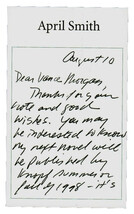 April Smith
August 10
Dear Vance Morgan,
Thanks for your
note and good
wishes. You may
be interested to know
my next novel will
be published by
Knopf summer or
fall of 1998 – it's